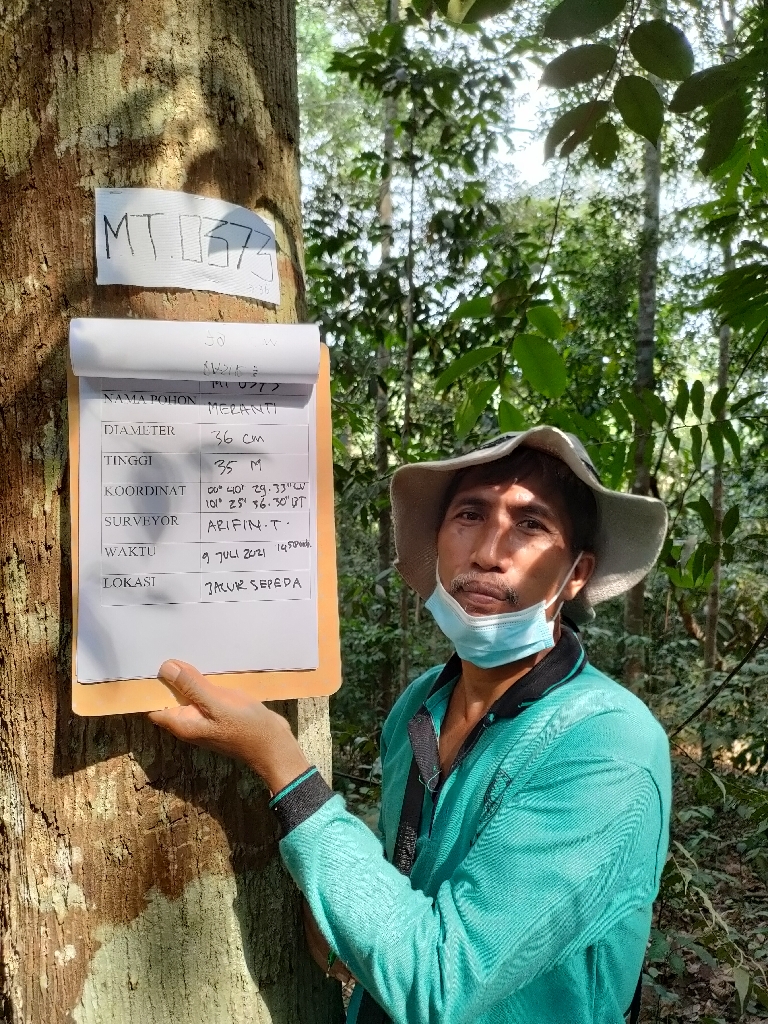 MT.0373
MT 0373
NAMA POHON MERANTI
DIAMETER 36 cm
TINGGI 35 M
KOORDINAT 00° 40' 29.33" LU
101° 25' 36.30" BT
SURVEYOR ARIFIN.T.
WAKTU 9 JULI 2021
LOKASI JALUR SEPEDA